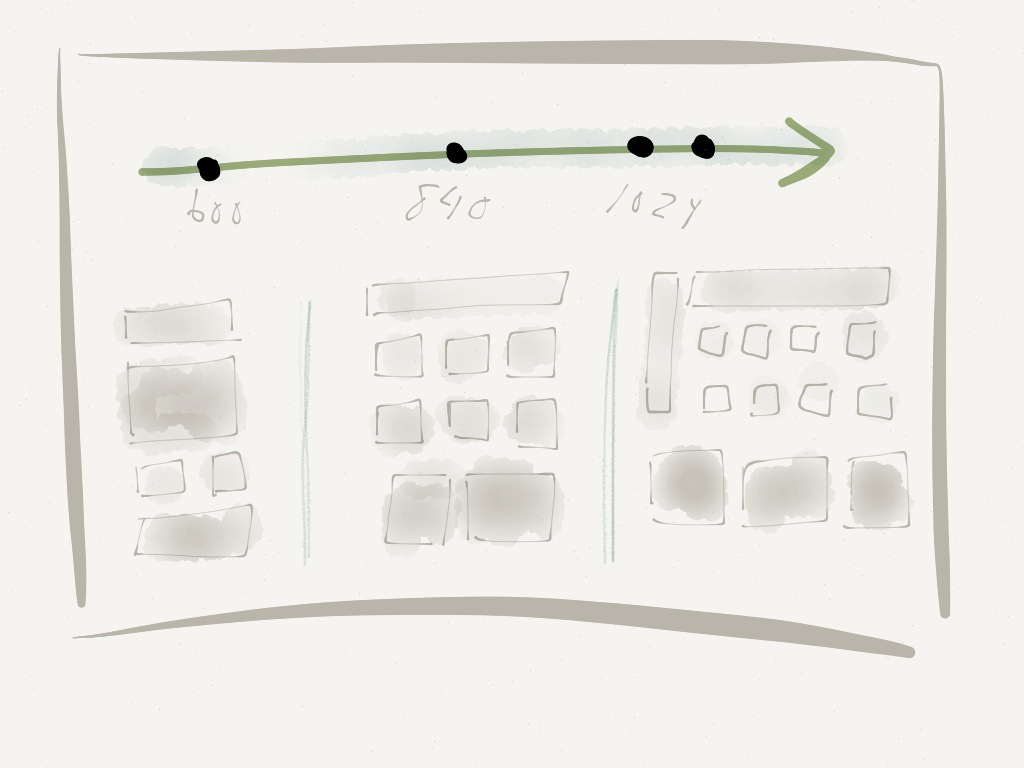 600 840 1024